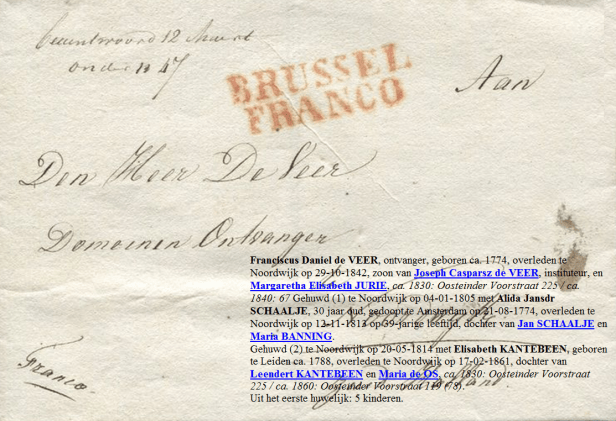 beantwoord 12 Maart
onder N 47
BRUSSEL
FRANCO
Aan
Den Heer De Veer
Domeinen Ontvanger
Franciscus Daniel de VEER, ontvanger, geboren ca. 1774, overleden te
Noordwijk op 29-10-1842, zoon van Joseph Casparsz de VEER, instituteur, en
Margaretha Elisabeth JURIE, ca. 1830: Oosteinder Voorstraat 225 / ca.
1840: 67 Gehuwd (1) te Noordwijk op 04-01-1805 met Alida Jansdr
SCHAALJE, 30 jaar oud, gedoopt te Amsterdam op 21-08-1774, overleden te
Noordwijk op 12-11-1813 op 39-jarige leeftijd, dochter van Jan SCHAALJE en
Maria BANNING.
Gehuwd (2) te Noordwijk op 20-05-1814 met Elisabeth KANTEBEEN, geboren
te Leiden ca. 1788, overleden te Noordwijk op 17-02-1861, dochter van
Leendert KANTEBEEN en Maria de OS, ca. 1830: Oosteinder Voorstraat
225 / ca. 1860: Oosteinder Voorstraat 119 (78).
Uit het eerste huwelijk: 5 kinderen.
Franco